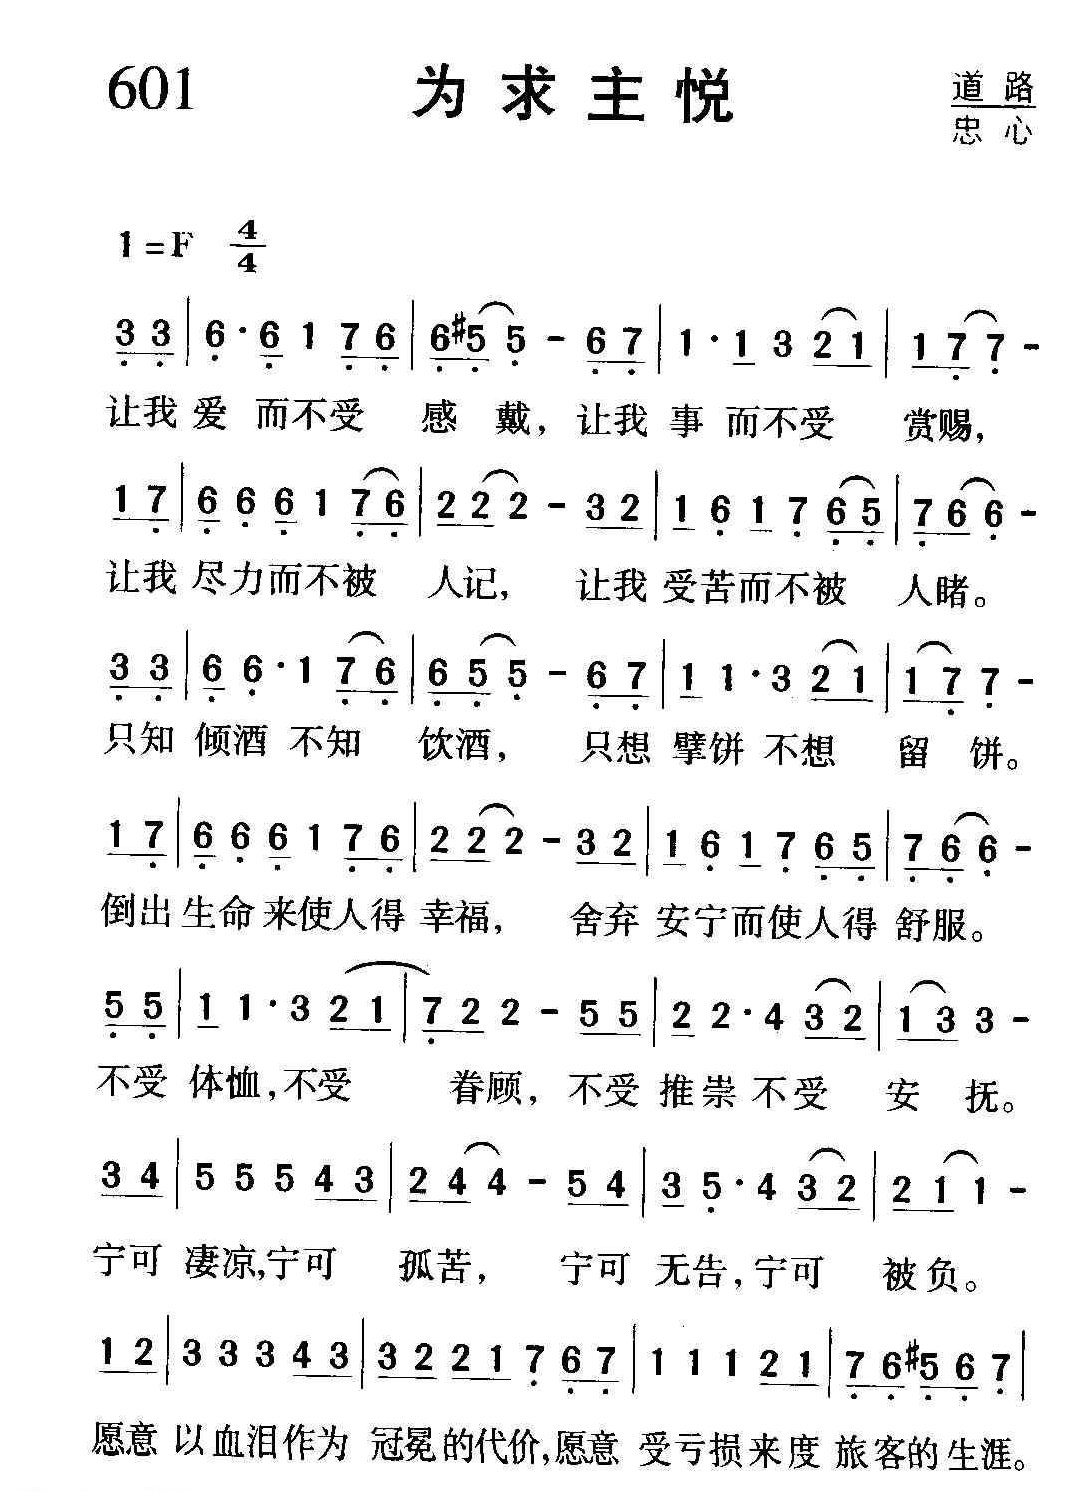 601 为求主悦 道路
忠心
1=F 4/4
3 3 | 6· 6 1 7 6 | 6 #5 5 - 6 7 | 1· 1 3 2 1 | 1 7 7 -
让我 爱 而不受 感 戴, 让我 事 而不受 赏赐,
1 7 | 6 6 6 1 7 6 | 2 2 2 - 3 2 | 1 6 1 7 6 5 | 7 6 6 -
让我 尽力而不被 人记, 让我 受苦而不被 人睹。
3 3 | 6 6· 1 7 6 | 6 5 5 - 6 7 | 1 1· 3 2 1 | 1 7 7 -
只知 倾酒 不知 饮酒, 只想 擘饼 不想 留 饼。
1 7 | 6 6 6 1 7 6 | 2 2 2 - 3 2 | 1 6 1 7 6 5 | 7 6 6 -
倒出 生命 来使人得 幸福, 舍弃 安宁而使人得 舒服。
5 5 | 1 1· 3 2 1 | 7 2 2 - 5 5 | 2 2· 4 3 2 | 1 3 3 -
不受 体恤,不受 眷顾, 不受 推崇 不受 安 抚。
3 4 | 5 5 5 4 3 | 2 4 4 - 5 4 | 3 5· 4 3 2 | 2 1 1 -
宁可 凄凉,宁可 孤苦, 宁可 无告,宁可 被负。
1 2 | 3 3 3 4 3 | 3 2 2 1 7 6 7 | 1 1 1 2 1 | 7 6 #5 6 7 |
愿意 以血泪作为 冠冕的代价,愿意 受亏损来度 旅客的生涯。